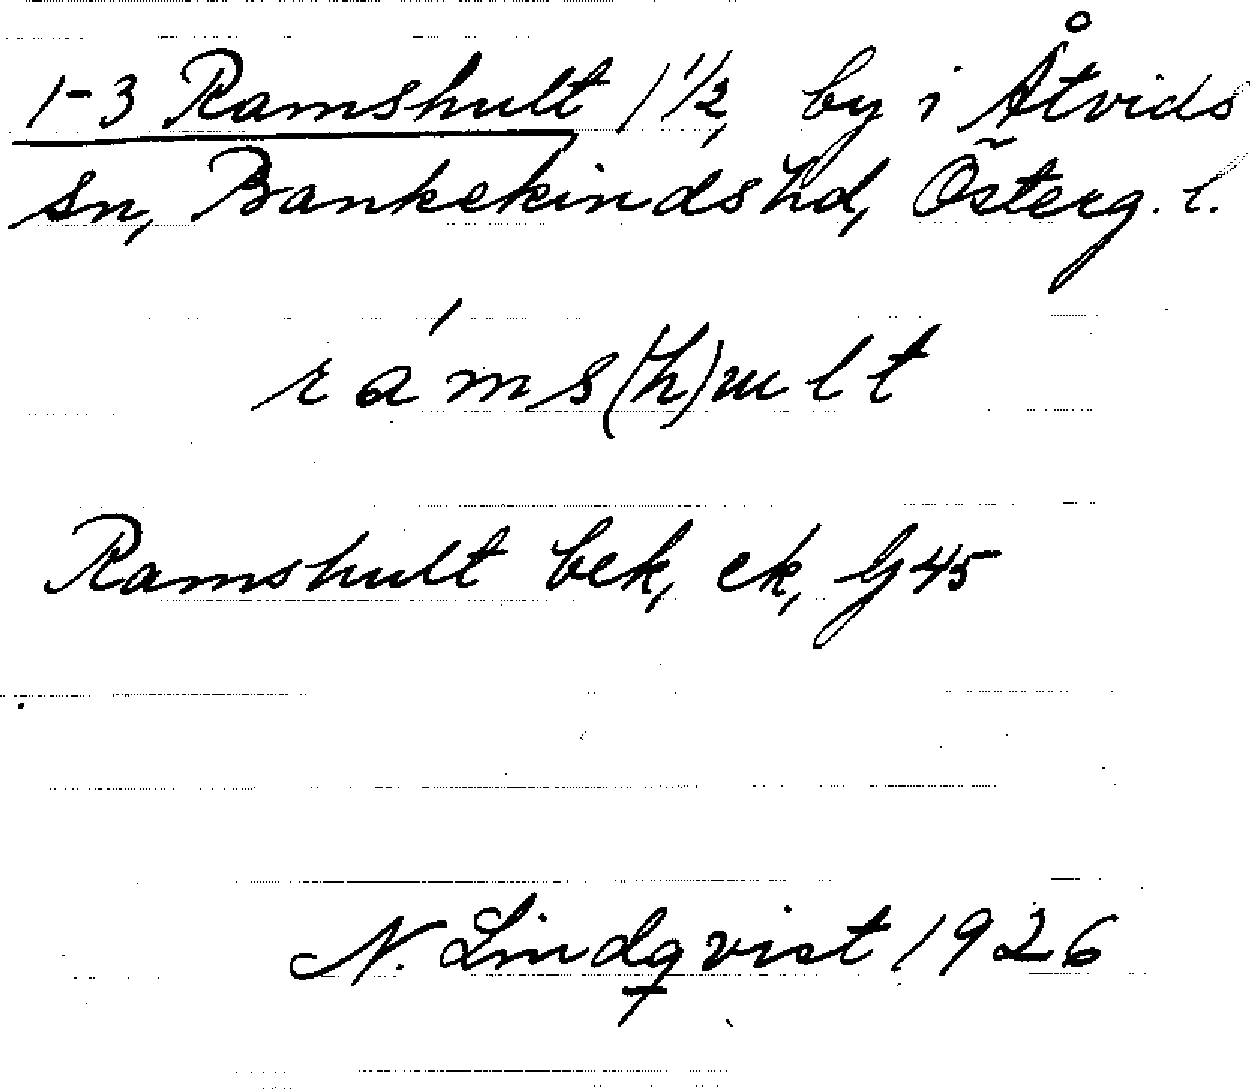 1-3 Ramshult 1 1/2, by i Åtvids
sn, Bankekinds hd, Österg. l.
rá m s(h)u l t
Ramshult bek, ek, G45
N. Lindqvist 1926